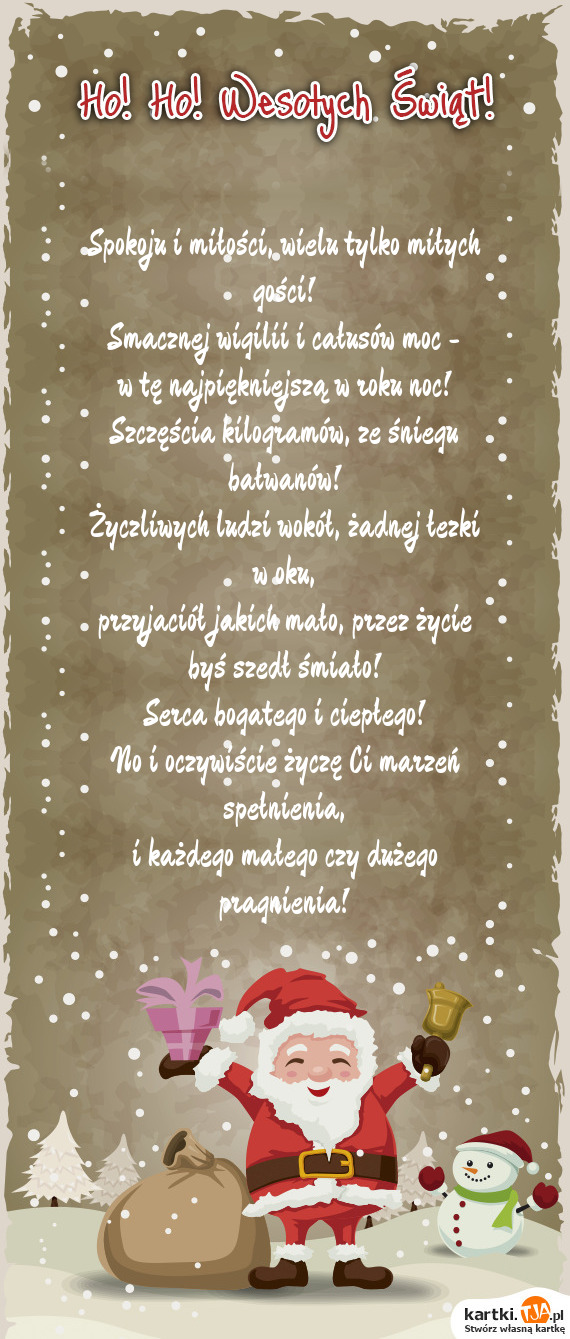 Ho! Ho! Wesołych Świąt!
Spokoju i miłości, wielu tylko miłych
gości!
Smacznej wigilii i całusów moc -
w tę najpiękniejszą w roku noc!
Szczęścia kilogramów, ze śniegu
bałwanów!
Życzliwych ludzi wokół, żadnej łezki
w oku,
przyjaciół jakich mało, przez życie
byś szedł śmiało!
Serca bogatego i ciepłego!
No i oczywiście życzę Ci marzeń
spełnienia,
i każdego małego czy dużego
pragnienia!
kartki.TJA.pl
Stwórz własną kartkę